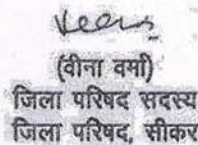 (वीना वर्मा)
जिला परिषद सदस्य
जिला परिषद, सीकर